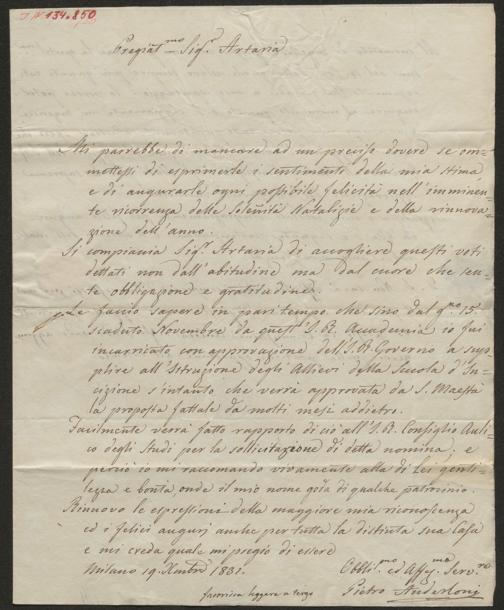 I.N. 134.850
Pregiat.mo Sig.r Artaria
Mi parrebbe di mancare ad un preciso dovere se om-
mettessi di esprimerle i sentimenti della mia stima,
e di augurarle ogni possibile felicità nell'imminen-
te ricorrenza delle Solennità Natalizie e della rinnova-
zione dell'anno.
Si compiaccia Sig.r Artaria di accogliere questi voti
dettati non dall'abitudine ma dal cuore che sen-
te obbligazione e gratitudine.
Le faccio sapere in pari tempo che sino dal g.no 15
scaduto Novembre da quest'I. R. Accademia io fui
incaricato con approvazione dell'I. R. Governo a sup-
plire all'Istruzione degli Allievi della Scuola d'In-
cizione s'intanto che verrà approvata da S. Maestà
la proposta fattale da molti mesi addietro.
Facilmente verrà fatto rapporto di ciò all'I. R. Consiglio Auli-
co degli Studi per la sollicitazione di detta nomina; e
perciò io mi raccomando vivamente alla di Lei genti-
lezza e bontà, onde il mio nome goda di qualche patrocinio.
Rinnovo le espressioni della maggiore mia riconoscenza
ed i felici augurj anche per tutta la distinta sua Casa
e mi creda quale mi pregio di essere
Milano 19 Xmbre 1831.
Obbli.mo ed Affez.mo Serv.re
Pietro Anderloni
favorisca leggere a tergo